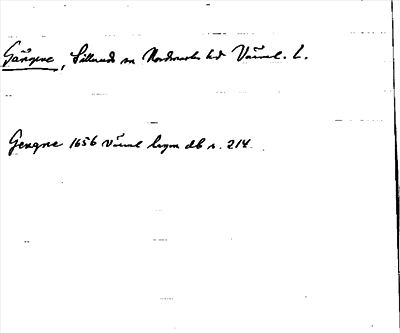 Gängene, Sillerud sn Nordmarks hd Värml. l.
Gengne 1656 Värml lagm db s. 214.